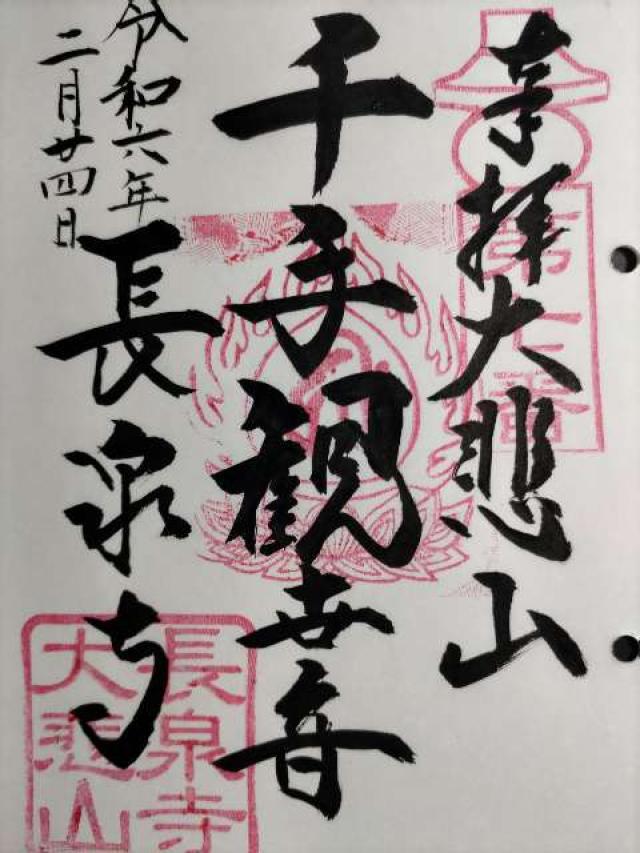 奉拝大悲山
第七番
千手観世音
長泉寺
令和六年
二月廿四日
長泉寺
大悲山